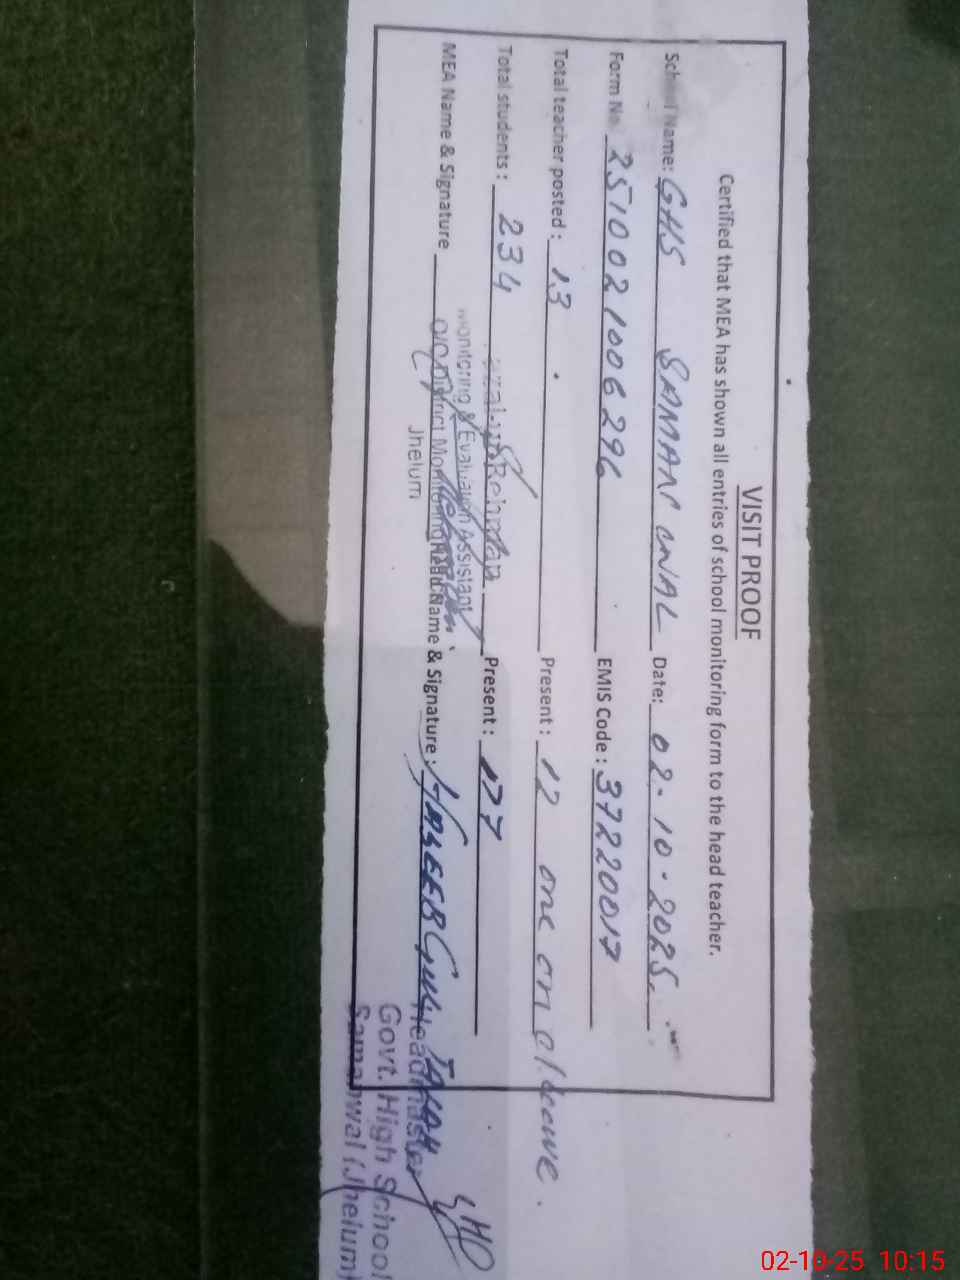 VISIT PROOF
Certified that MEA has shown all entries of school monitoring form to the head teacher.
School Name: GHS SAMAN WAL Date: 02-10-2025.
Form No 2510021006296 EMIS Code: 37220017
Total teacher posted: 13 Present: 12 one on cl. leave.
Total students: 234 Present: 177
MEA Name & Signature Head Name & Signature: HASEEB GUL
Rehman
Monitoring & Evaluation Assistant
District Monitoring
Jhelum
Headmaster
Govt. High School
Samanwal (Jhelum)
02-10-25 10:15